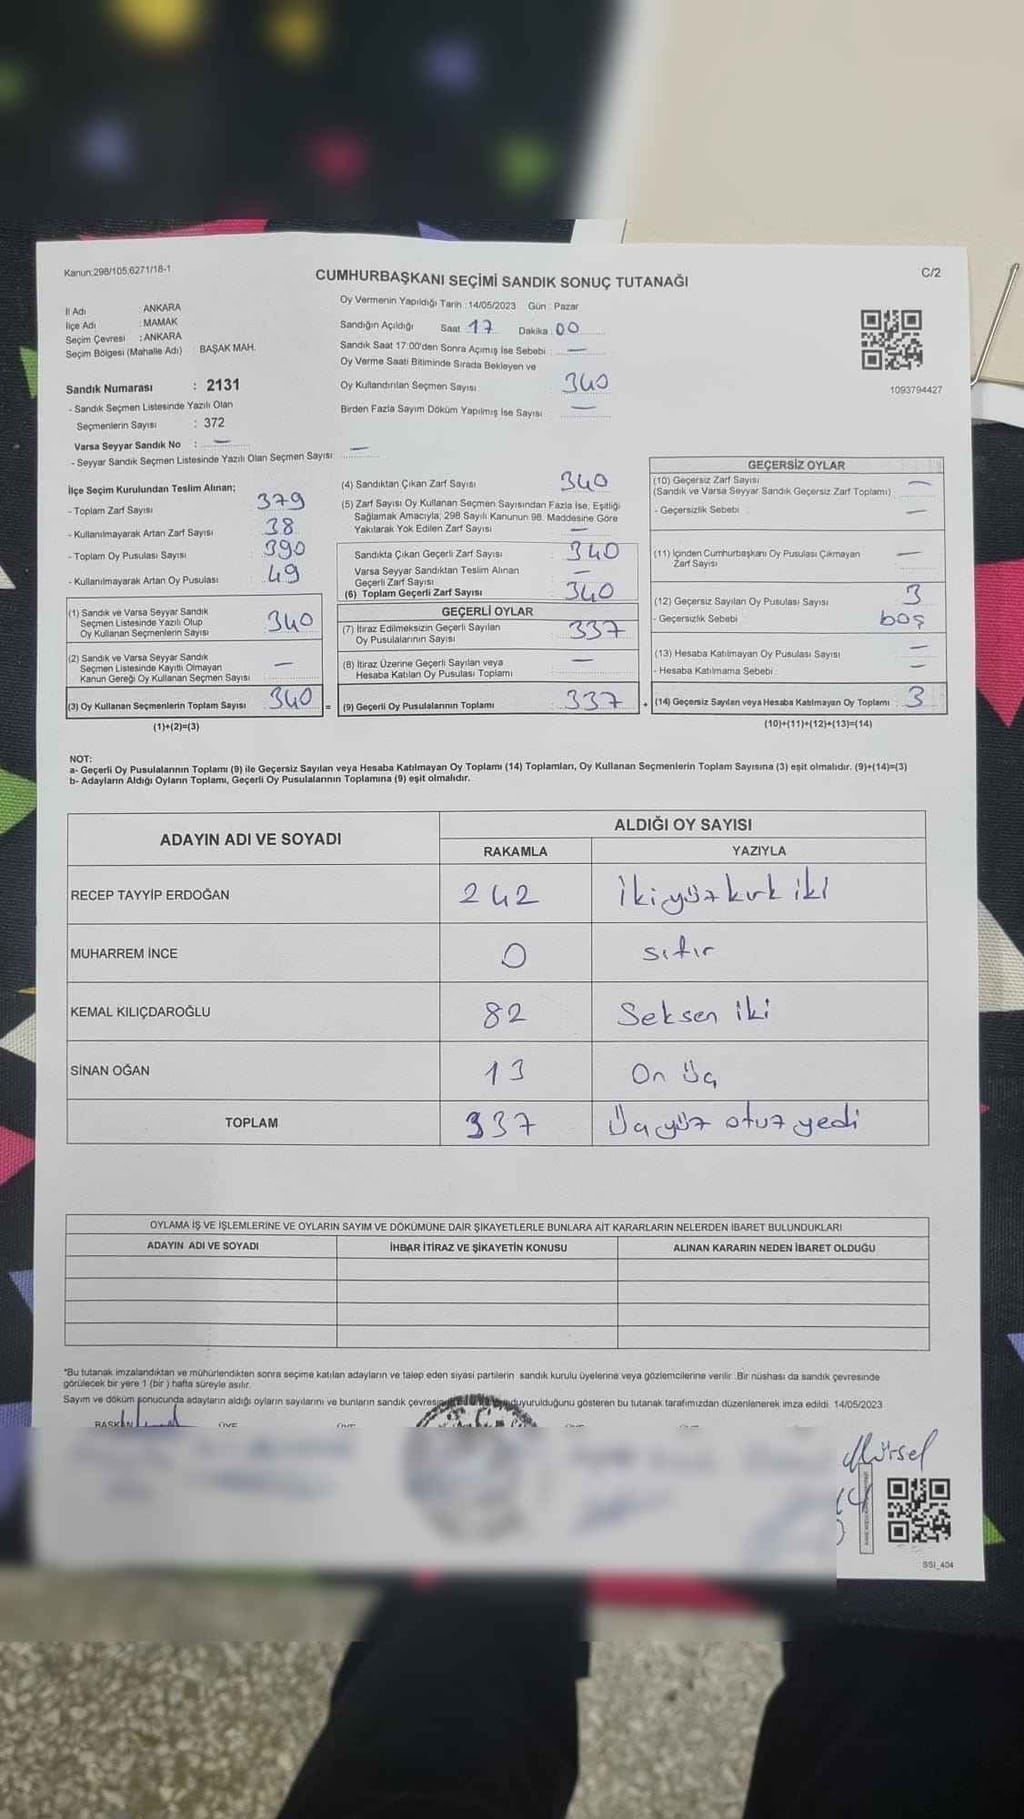 Kanun:298/105,6271/18-1
CUMHURBAŞKANI SEÇİMİ SANDIK SONUÇ TUTANAĞI
C/2
İl Adı : ANKARA
İlçe Adı : MAMAK
Seçim Çevresi : ANKARA
Seçim Bölgesi (Mahalle Adı) BAŞAK MAH.
Sandık Numarası : 2131
- Sandık Seçmen Listesinde Yazılı Olan
Seçmenlerin Sayısı : 372
Varsa Seyyar Sandık No : —
- Seyyar Sandık Seçmen Listesinde Yazılı Olan Seçmen Sayısı —
Oy Vermenin Yapıldığı Tarih : 14/05/2023 Gün : Pazar
Sandığın Açıldığı Saat : 17 Dakika : 00
Sandık Saat 17:00'den Sonra Açımış İse Sebebi : —
Oy Verme Saati Bitiminde Sırada Bekleyen ve
Oy Kullandırılan Seçmen Sayısı 340
Birden Fazla Sayım Döküm Yapılmış İse Sayısı —
1093794427
İlçe Seçim Kurulundan Teslim Alınan;
- Toplam Zarf Sayısı 379
- Kullanılmayarak Artan Zarf Sayısı 38
- Toplam Oy Pusulası Sayısı 390
- Kullanılmayarak Artan Oy Pusulası 49
(1) Sandık ve Varsa Seyyar Sandık
Seçmen Listesinde Yazılı Olup
Oy Kullanan Seçmenlerin Sayısı 340
(2) Sandık ve Varsa Seyyar Sandık
Seçmen Listesinde Kayıtlı Olmayan
Kanun Gereği Oy Kullanan Seçmen Sayısı —
(3) Oy Kullanan Seçmenlerin Toplam Sayısı 340 =
(1)+(2)=(3)
(4) Sandıktan Çıkan Zarf Sayısı 340
(5) Zarf Sayısı Oy Kullanan Seçmen Sayısından Fazla İse, Eşitliği
Sağlamak Amacıyla, 298 Sayılı Kanunun 98. Maddesine Göre
Yakılarak Yok Edilen Zarf Sayısı —
Sandıkta Çıkan Geçerli Zarf Sayısı 340
Varsa Seyyar Sandıktan Teslim Alınan
Geçerli Zarf Sayısı —
(6) Toplam Geçerli Zarf Sayısı 340
GEÇERLİ OYLAR
(7) İtiraz Edilmeksizin Geçerli Sayılan
Oy Pusulalarının Sayısı 337
(8) İtiraz Üzerine Geçerli Sayılan veya
Hesaba Katılan Oy Pusulası Toplamı —
(9) Geçerli Oy Pusulalarının Toplamı 337 +
GEÇERSİZ OYLAR
(10) Geçersiz Zarf Sayısı
(Sandık ve Varsa Seyyar Sandık Geçersiz Zarf Toplamı) —
- Geçersizlik Sebebi : —
(11) İçinden Cumhurbaşkanı Oy Pusulası Çıkmayan
Zarf Sayısı —
(12) Geçersiz Sayılan Oy Pusulası Sayısı 3
- Geçersizlik Sebebi : boş
(13) Hesaba Katılmayan Oy Pusulası Sayısı —
- Hesaba Katılmama Sebebi : —
(14) Geçersiz Sayılan veya Hesaba Katılmayan Oy Toplamı 3
(10)+(11)+(12)+(13)=(14)
NOT:
a- Geçerli Oy Pusulalarının Toplamı (9) ile Geçersiz Sayılan veya Hesaba Katılmayan Oy Toplamı (14) Toplamları, Oy Kullanan Seçmenlerin Toplam Sayısına (3) eşit olmalıdır. (9)+(14)=(3)
b- Adayların Aldığı Oyların Toplamı, Geçerli Oy Pusulalarının Toplamına (9) eşit olmalıdır.
ADAYIN ADI VE SOYADI ALDIĞI OY SAYISI
RAKAMLA YAZIYLA
RECEP TAYYİP ERDOĞAN 242 İkiyüz kırk iki
MUHARREM İNCE 0 sıfır
KEMAL KILIÇDAROĞLU 82 Seksen iki
SİNAN OĞAN 13 On üç
TOPLAM 337 Üçyüz otuz yedi
OYLAMA İŞ VE İŞLEMLERİNE VE OYLARIN SAYIM VE DÖKÜMÜNE DAİR ŞİKAYETLERLE BUNLARA AİT KARARLARIN NELERDEN İBARET BULUNDUKLARI
ADAYIN ADI VE SOYADI İHBAR İTİRAZ VE ŞİKAYETİN KONUSU ALINAN KARARIN NEDEN İBARET OLDUĞU
*Bu tutanak imzalandıktan ve mühürlendikten sonra seçime katılan adayların ve talep eden siyasi partilerin sandık kurulu üyelerine veya gözlemcilerine verilir. Bir nüshası da sandık çevresinde
görülecek bir yere 1 (bir ) hafta süreyle asılır.
Sayım ve döküm sonucunda adayların aldığı oyların sayılarını ve bunların sandık çevresinde duyurulduğunu gösteren bu tutanak tarafımızdan düzenlenerek imza edildi. 14/05/2023
Mürsel
SSI_404